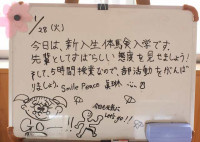 1/28 (火)
今日は、新入生体験入学です。
先輩としてすばらしい態度を見せましょう!
そして、5時間授業なので、部活動をがんば
りましょう。Smile Peace
今日も元気に
Let's go!!